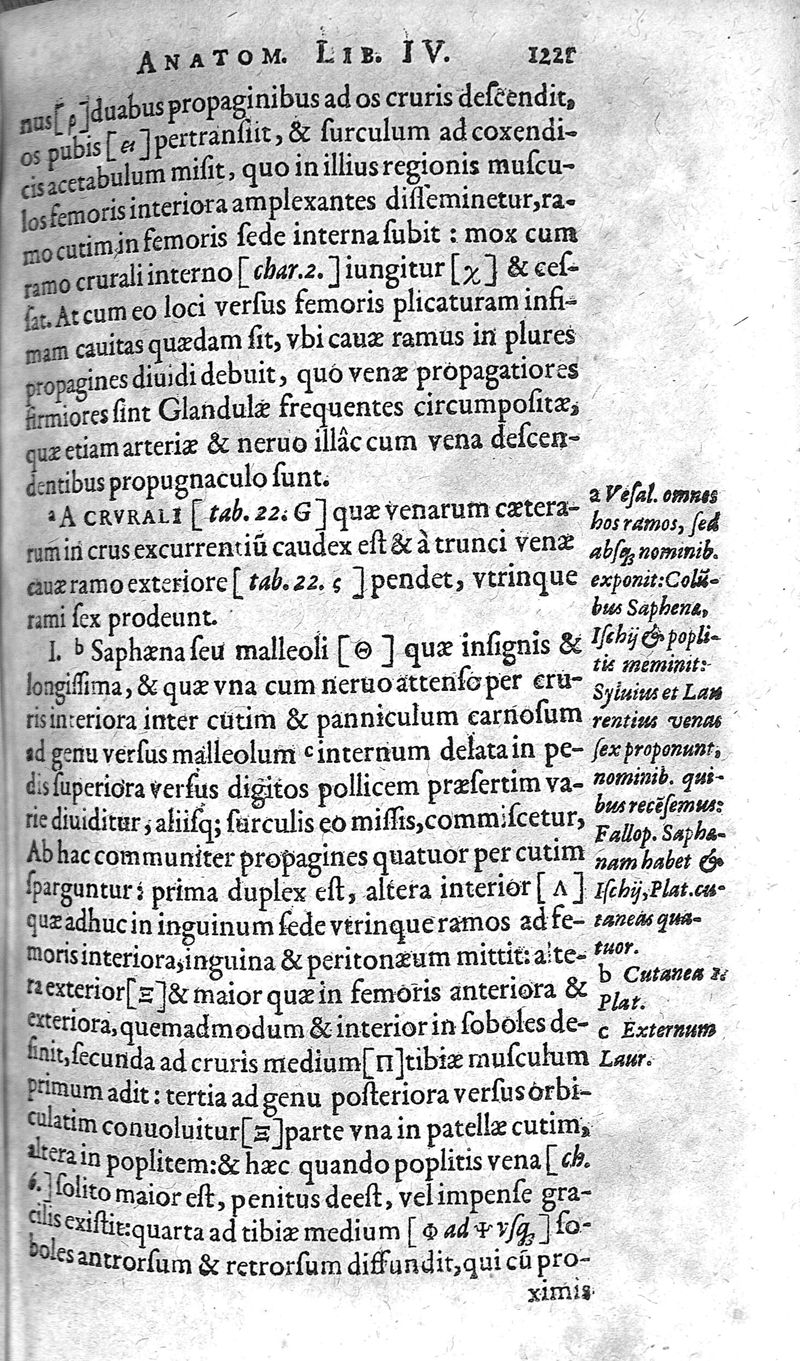 ANATOM. LIB. IV. 1221
nus [ρ] duabus propaginibus ad os cruris deſcendit,
os pubis [ei] pertranſiit, & ſurculum ad coxendi-
cis acetabulum miſit, quo in illius regionis muſcu-
los femoris interiora amplexantes diſſeminetur, ra-
mo cutim in femoris ſede interna ſubit : mox cum
ramo crurali interno [ char. 2. ] iungitur [ χ ] & ceſ-
ſat. At cum eo loci verſus femoris plicaturam infi-
mam cauitas quædam ſit, vbi cauæ ramus in plures
propagines diuidi debuit, quo venæ propagatiores
firmiores ſint Glandulæ frequentes circumpoſitæ,
quæ etiam arteriæ & neruo illâc cum vena deſcen-
dentibus propugnaculo ſunt.
ᵃA CRVRALI [ tab. 22. G ] quæ venarum cætera-
rum in crus excurrentiũ caudex eſt & à trunci venæ
cauæ ramo exteriore [ tab. 22. ς ] pendet, vtrinque
rami ſex prodeunt.
I. ᵇ Saphæna ſeu malleoli [ Θ ] quæ inſignis &
longiſſima, & quæ vna cum neruo attenſo per cru-
ris interiora inter cutim & panniculum carnoſum
ad genu verſus malleolum ᶜ internum delata in pe-
dis ſuperiora verſus digitos pollicem præſertim va-
rie diuiditur, aliiſq; ſurculis eo miſſis, commiſcetur,
Ab hac communiter propagines quatuor per cutim
ſparguntur : prima duplex eſt, altera interior [ Λ ]
quæ adhuc in inguinum ſede vtrinque ramos ad fe-
moris interiora, inguina & peritonæum mittit: alte-
ra exterior [Ξ] & maior quæ in femoris anteriora &
exteriora, quemadmodum & interior in ſoboles de-
ſinit, ſecunda ad cruris medium [Π] tibiæ muſculum
primum adit : tertia ad genu poſteriora verſus orbi-
culatim conuoluitur [Ξ] parte vna in patellæ cutim,
altera in poplitem: & hæc quando poplitis vena [ ch.
6. ] ſolito maior eſt, penitus deeſt, vel impenſe gra-
cilis exiſtit: quarta ad tibiæ medium [ Φ ad Ψ vſq; ] ſo-
boles antrorſum & retrorſum diffundit, qui cũ pro-
ximis
a Veſal. omnes
hos ramos, ſed
abſq; nominib.
exponit: Colũ-
bus Saphena,
Iſchij & popli-
tis meminit:
Syluius et Lau
rentius venas
ſex proponunt,
nominib. qui-
bus recẽſemus:
Fallop. Saphæ-
nam habet &
Iſchij, Plat. cu-
taneas qua-
tuor.
b Cutanea 1.
Plat.
c Externum
Laur.